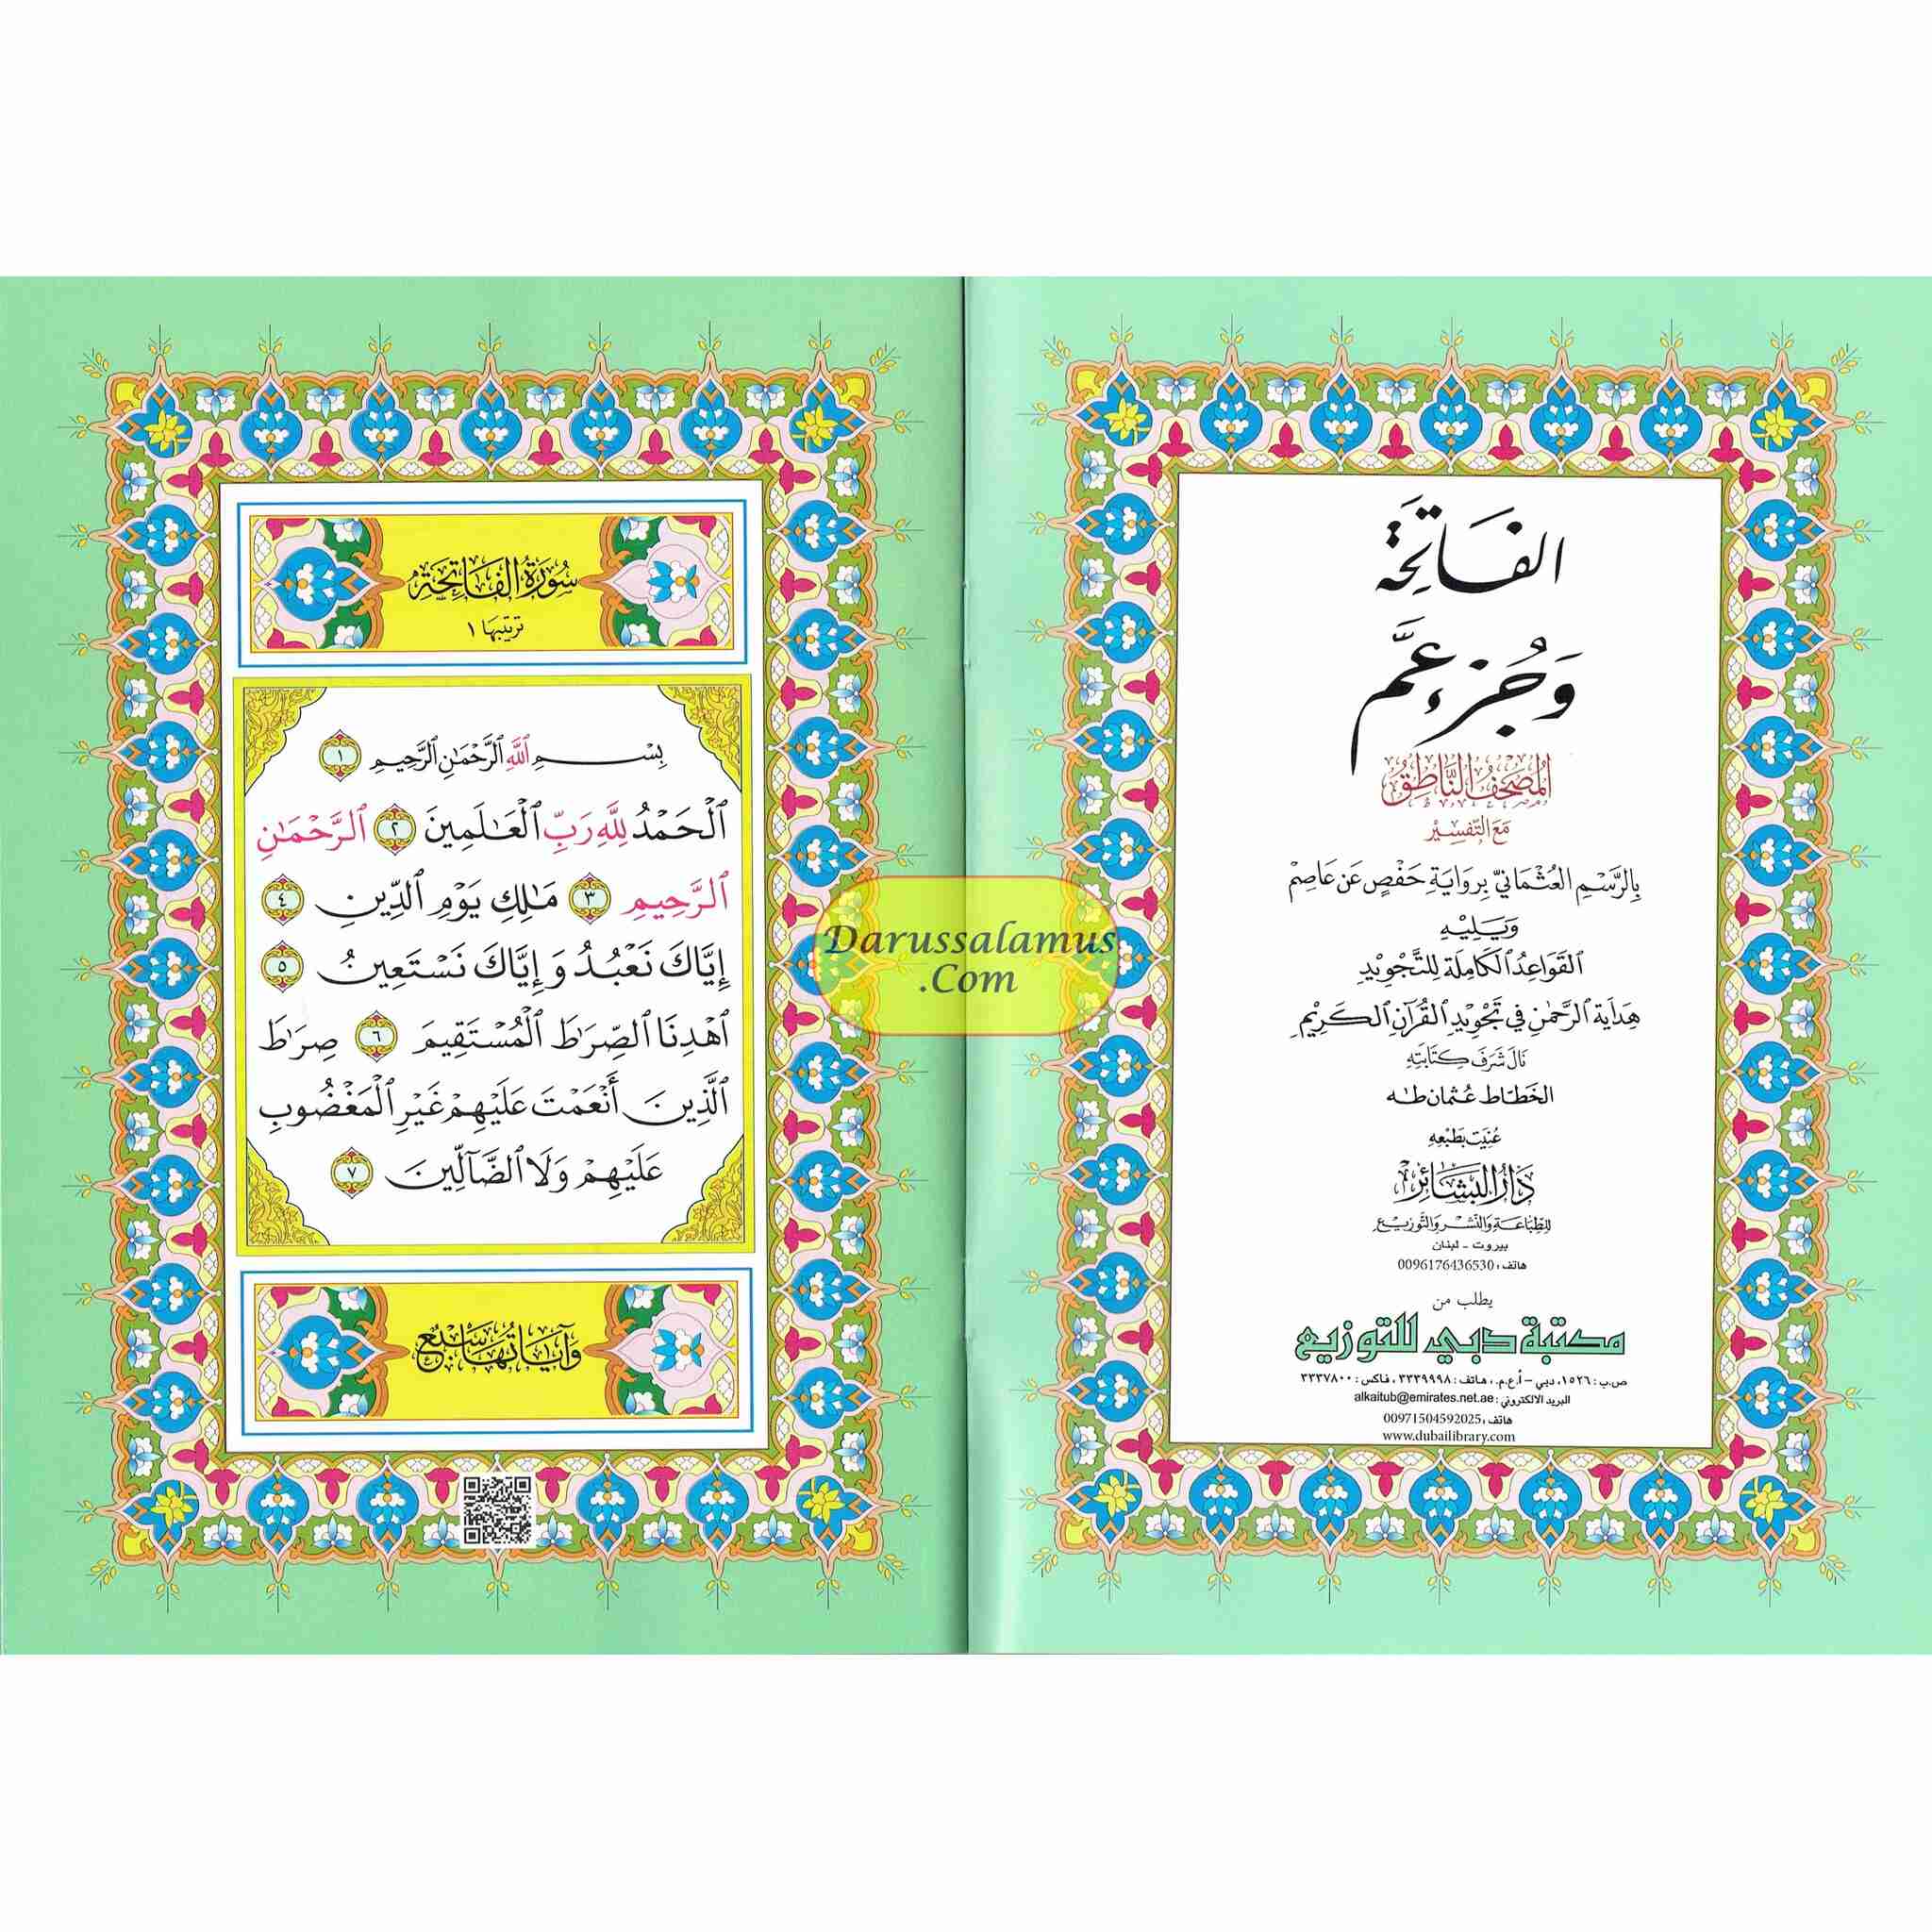 الفَاتِحَة
وَجُزء عَمَّ
المُصْحَفُ النَّاطِقُ
مَعَ التَّفسِيْر
بِالرَّسْمِ العُثْمَانيِّ بِروَايَةِ حَفْصٍ عَن عَاصِمْ
وَيَليْهِ
القَوَاعِدُ الكَامِلَة لِلتَّجْوِيْدِ
هِدَايَة الرَّحمٰن فِي تَجْوِيْدِ القُرآنِ الكَرِيْمِ
نَالَ شَرَفَ كِتَابَتِهِ
الخَطّاط عُثمان طٰه
عُنيَت بطَبْعِهِ
دَارُ البَشَائِر
للطِّبَاعَة وَالنَّشْر وَالتَّوزيْع
بيروت - لبنان
هاتف : 0096176436530
يطلب من
مكتبة دبي للتوزيع
ص.ب : ١٥٢٦، دبي - أ.ع.م.، هاتف : ٣٣٣٩٩٩٨ ، فاكس : ٣٣٣٧٨٠٠
البريد الالكتروني : alkaitub@emirates.net.ae
هاتف : 00971504592025
www.dubailibrary.com
سُورَةُ الفَاتِحَةِ
ترتيبها ١
بِسْمِ ٱللَّهِ ٱلرَّحْمَٰنِ ٱلرَّحِيمِ ١
ٱلْحَمْدُ لِلَّهِ رَبِّ ٱلْعَٰلَمِينَ ٢ ٱلرَّحْمَٰنِ
ٱلرَّحِيمِ ٣ مَٰلِكِ يَوْمِ ٱلدِّينِ ٤
إِيَّاكَ نَعْبُدُ وَإِيَّاكَ نَسْتَعِينُ ٥
ٱهْدِنَا ٱلصِّرَٰطَ ٱلْمُسْتَقِيمَ ٦ صِرَٰطَ
ٱلَّذِينَ أَنْعَمْتَ عَلَيْهِمْ غَيْرِ ٱلْمَغْضُوبِ
عَلَيْهِمْ وَلَا ٱلضَّآلِّينَ ٧
وَآيَاتُهَا سَبْعٌ
Darussalamus
.Com